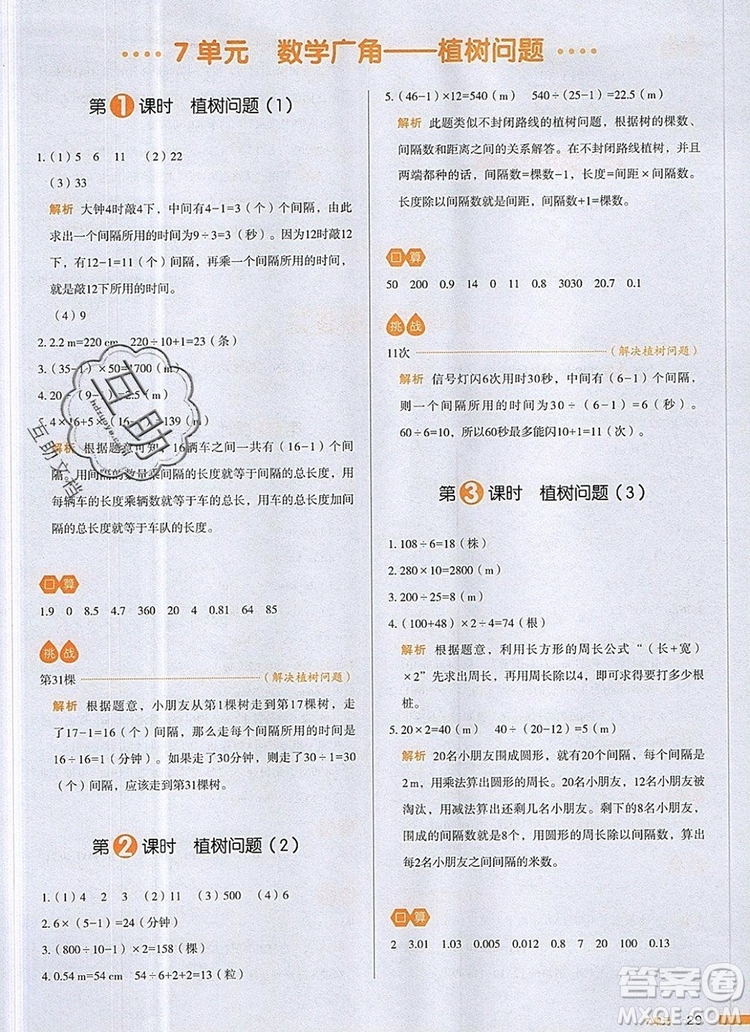 7 单元 数学广角——植树问题
第1课时 植树问题(1)
1.(1)5 6 11 (2)22
(3)33
解析 大钟4时敲4下，中间有4－1=3（个）个间隔，由此
求出一个间隔所用的时间为9÷3=3（秒）。因为12时敲12
下，有12－1=11（个）间隔，再乘一个间隔所用的时间，
就是敲12下所用的时间。
(4)9
2. 2.2 m=220 cm 220÷10+1=23（条）
3.(35－1)×50=1700（m）
4. 20÷(9－1)=2.5（m）
5. 4×16+5×(16－1)=139（m）
解析 根据题意可知，16辆车之间一共有（16－1）个间
隔，用间隔的数量乘间隔的长度就等于间隔的总长度，用
每辆车的长度乘辆数就等于车的总长度，用车的总长度加
间隔的总长度就等于车队的总长度。
口算
1.9 0 8.5 4.7 360 20 4 0.81 64 85
挑战
第31棵 （解决植树问题）
解析 根据题意，小朋友从第1棵树走到第17棵树，走
了17－1=16（个）间隔，那么走一个间隔所用的时间是
16÷16=1（分钟），如果走了30分钟，则走了30÷1=30
（个）间隔，应该走到第31棵树。
第2课时 植树问题(2)
1.(1)4 2 3 (2)4 (3)500 (4)6
2. 6×(5－1)=24（分钟）
3.(800÷10－1)×2=158（棵）
4. 0.54 m=54 cm 54÷6+2+2=13（粒）
5.(46－1)×12=540（m） 540÷(25－1)=22.5（m）
解析 此题类似不封闭路线的植树问题，根据树的棵数、
间隔数和距离之间的关系解答。在不封闭路线植树，并且
两端都种的话，有这样的数量关系：棵数－1=间隔数，
长度除以间隔数就是间距，间隔数+1=棵数。
口算
50 200 0.9 14 0 11 0.8 3030 20.7 0.1
挑战
11次 （解决植树问题）
解析 信号灯闪6次用时30秒，中间有（6－1）个间隔，
则每个间隔所用的时间为30÷（6－1）=6（秒），
60÷6=10，所以60秒最多能闪11次。
第3课时 植树问题(3)
1. 108÷6=18（株）
2. 280×10=2800（m）
3. 200÷25=8（m）
4.(100+48)×2÷4=74（根）
解析 根据题意，利用长方形的周长公式“（长+宽）
×2”先求出周长，再用周长除以4即可求得需要多少根
桩。
5. 20×2=40（m） 40÷(20－12)=5（m）
解析 20名小朋友围成圆形，有20个间隔，每个间隔是
2 m，用乘法算出圆形的周长。游戏中有12名小朋友被
淘汰，用减法算出还剩8名小朋友。剩下的8名小朋友，
围成的间隔数就是8个，用圆形的周长除以间隔数，算出
每2名小朋友之间间隔的米数。
口算
2 3.01 1.03 0.005 0.012 0.8 7 20 100 0.13
29
互助
hdzuoye.com
互助文档
答案圈
MXQE.COM